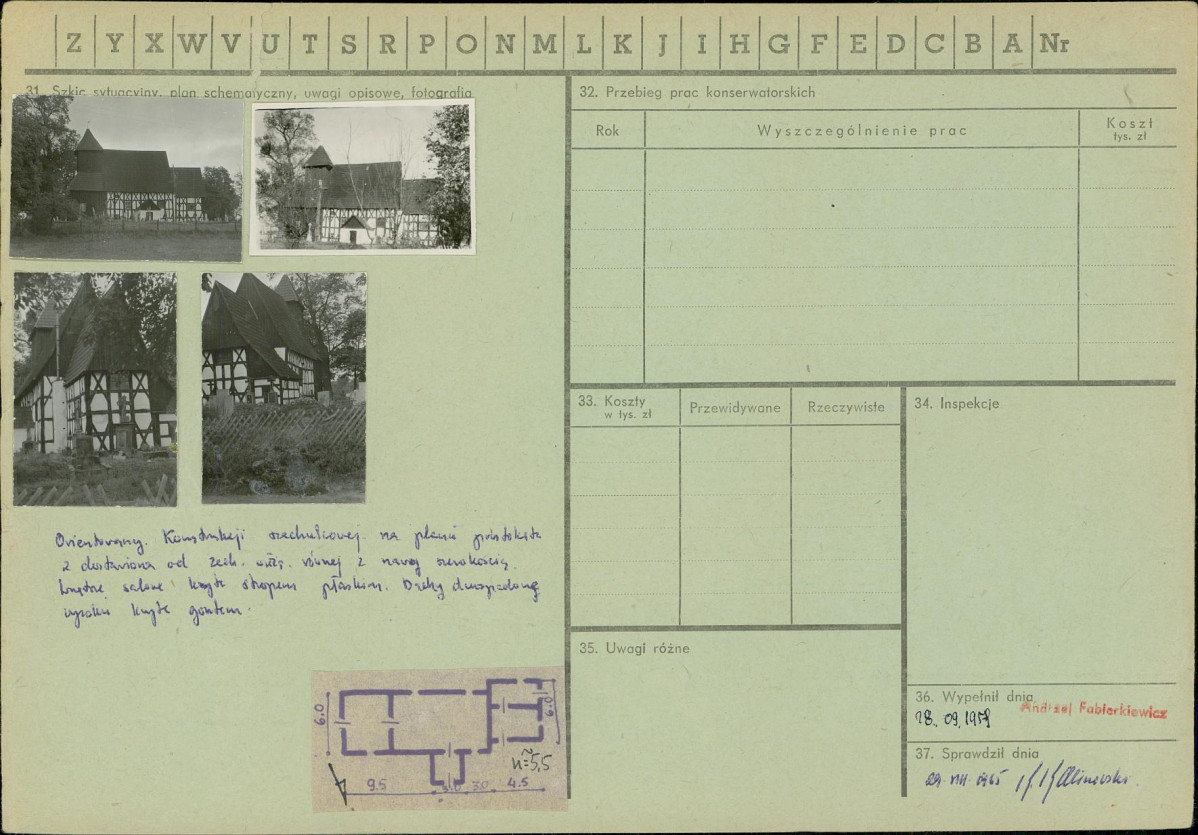 Z Y X W V U T S R P O N M L K J I H G F E D C B A Nr
31. Szkic sytuacyjny, plan schematyczny, uwagi opisowe, fotografia
Orientowany. Konstrukcji szachulcowej na planie prostokąta
z dostawioną od zach. wieżą, równej z nawą szerokością.
Wnętrze salowe kryte stropem płaskim. Dachy dwuspadowe,
wysokie kryte gontem.
6.0
6.0
n=5,5
9.5 3.0 4.5
32. Przebieg prac konserwatorskich
Rok Wyszczególnienie prac Koszt
tys. zł
33. Koszty
w tys. zł
Przewidywane Rzeczywiste
34. Inspekcje
35. Uwagi różne
36. Wypełnił dnia
18. 09. Andrzej Fabierkiewicz
37. Sprawdził dnia
1965